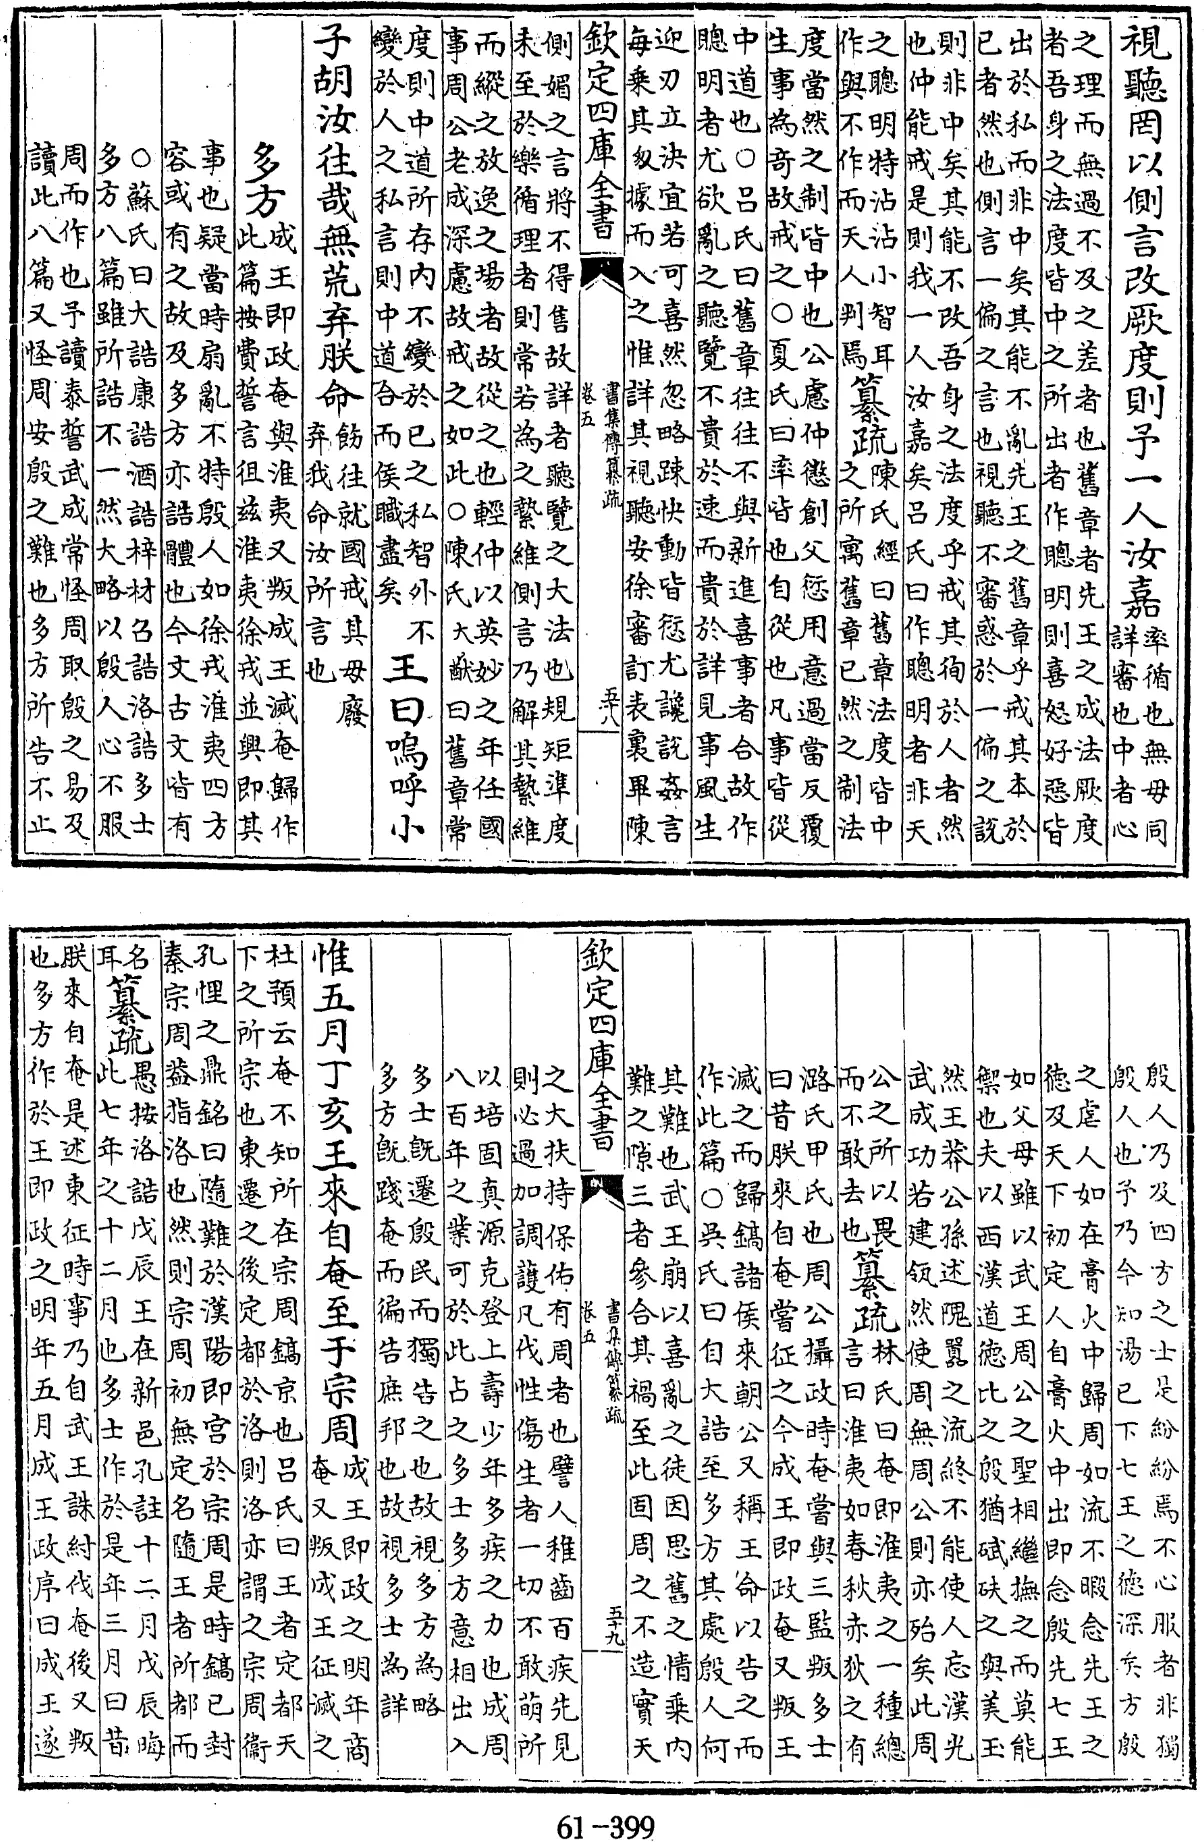 視聽罔以側言改厥度則予一人汝嘉
率循也無毋同
詳審也中者心
之理而無過不及之差者也舊章者先王之成法厥度
者吾身之法度皆中之所出者作聰明則喜怒好惡皆
出於私而非中矣其能不亂先王之舊章乎戒其本於
已者然也側言一偏之言也視聽不審惑於一偏之說
則非中矣其能不改吾身之法度乎戒其徇於人者然
也仲能戒是則我一人汝嘉矣呂氏曰作聰明者非天
之聰明特沾沾小智耳
作與不作而天人判焉
纂疏
陳氏經曰舊章法度皆中
之所寓舊章已然之制法
度當然之制皆中也公慮仲懲創父愆用意過當反覆
生事為奇故戒之○夏氏曰率皆也自從也凡事皆從
中道也○呂氏曰舊章往往不與新進喜事者合故作
聰明者尤欲亂之聽覽不貴於速而貴於詳見事風生
迎刃立決宜若可喜然忽略疎快動皆愆尤讒說姦言
每乗其匆據而入之惟詳其視聽安徐審訂表裏畢陳
欽定四庫全書
書集傳纂疏
卷五
五十八
側媚之言將不得售故詳者聽覽之大法也規矩準度
未至於樂循理者則常若為之縶維側言乃解其縶維
而縱之放逸之場者故從之也輕仲以英妙之年任國
事周公老成深慮故戒之如此○陳氏大猷曰舊章常
度則中道所存內不變於已之私智外不
變於人之私言則中道合而侯職盡矣
王曰嗚呼小
子胡汝往哉無荒弃朕命
飭往就國戒其毋廢
弃我命汝所言也
多方
成王即政奄與淮夷又叛成王滅奄歸作
此篇按費誓言徂兹淮夷徐戎並興即其
事也疑當時扇亂不特殷人如徐戎淮夷四方
容或有之故及多方亦誥體也今文古文皆有
○蘇氏曰大誥康誥酒誥梓材召誥洛誥多士
多方八篇雖所誥不一然大略以殷人心不服
周而作也予讀泰誓武成常怪周取殷之易及
讀此八篇又怪周安殷之難也多方所告不止
殷人乃及四方之士是紛紛焉不心服者非獨
殷人也予乃今知湯已下七王之德深矣方殷
之虐人如在膏火中歸周如流不暇念先王之
德及天下初定人自膏火中出即念殷先七王
如父母雖以武王周公之聖相繼撫之而莫能
禦也夫以西漢道德比之殷猶碔砆之與美玉
然王莽公孫述隗囂之流終不能使人忘漢光
武成功若建瓴然使周無周公則亦殆矣此周
公之所以畏
而不敢去也
纂疏
林氏曰奄即淮夷之一種總
言曰淮夷如春秋赤狄之有
潞氏甲氏也周公攝政時奄嘗與三監叛多士
曰昔朕來自奄嘗征之今成王即政奄又叛王
滅之而歸鎬諸侯來朝公又稱王命以告之而
作此篇○吳氏曰自大誥至多方其處殷人何
其難也武王崩以喜亂之徒因思舊之情乗內
難之隙三者參合其禍至此固周之不造實天
欽定四庫全書
書集傳纂疏
卷五
五十九
之大扶持保佑有周者也譬人稚齒百疾先見
則必過加調護凡伐性傷生者一切不敢萌所
以培固真源克登上壽少年多疾之力也成周
八百年之業可於此占之多士多方意相出入
多士既遷殷民而獨告之也故視多方為略
多方既踐奄而徧告庶邦也故視多士為詳
惟五月丁亥王來自奄至于宗周
成王即政之明年商
奄又叛成王征滅之
杜預云奄不知所在宗周鎬京也呂氏曰王者定都天
下之所宗也東遷之後定都於洛則洛亦謂之宗周衞
孔悝之鼎銘曰隨難於漢陽即宮於宗周是時鎬已封
秦宗周葢指洛也然則宗周初無定名隨王者所都而
名
耳
纂疏
愚按洛誥戊辰王在新邑孔註十二月戊辰晦
此七年之十二月也多士作於是年三月曰昔
朕來自奄是述東征時事乃自武王誅紂伐奄後又叛
也多方作於王即政之明年五月成王政序曰成王遂
61-399